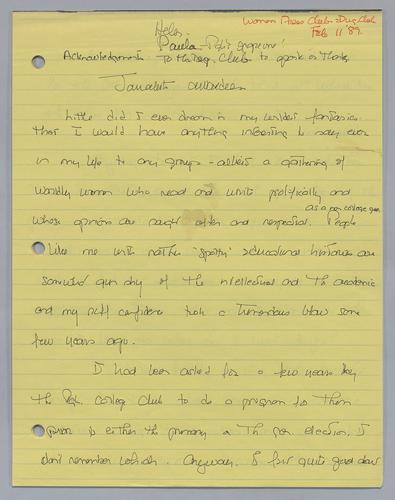 Women Press Club
Feb 11 89
Helen
Paula
Acknowledgement to Club to speak
Little did I ever dream in my wildest fantasies
that I would have anything interesting to say ever
in my life to any group - a gathering of
worldly women who read and write prolifically and
as a
whose opinions are sought after and respected. People
like me with rather "spotty" educational histories are
somewhat gun shy of the intellectual and the academic
and my self confidence took a tremendous blow some
few years ago.
I had been asked for a few years by
the College Club to do a program for them
prior to either the primary or the election, I
don't remember which. Anyway, I felt quite good about